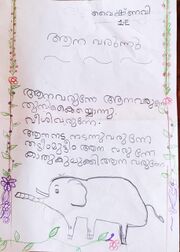 വൈഷ്ണവി
1E
ആന വരുന്നു
ആനവരുന്നേ ആനവരുന്നേ
വീശിവരുന്നേ
ആനനട നടന്നുവരുന്നേ
ആന വരുന്നേ
ആന വരുന്നേ